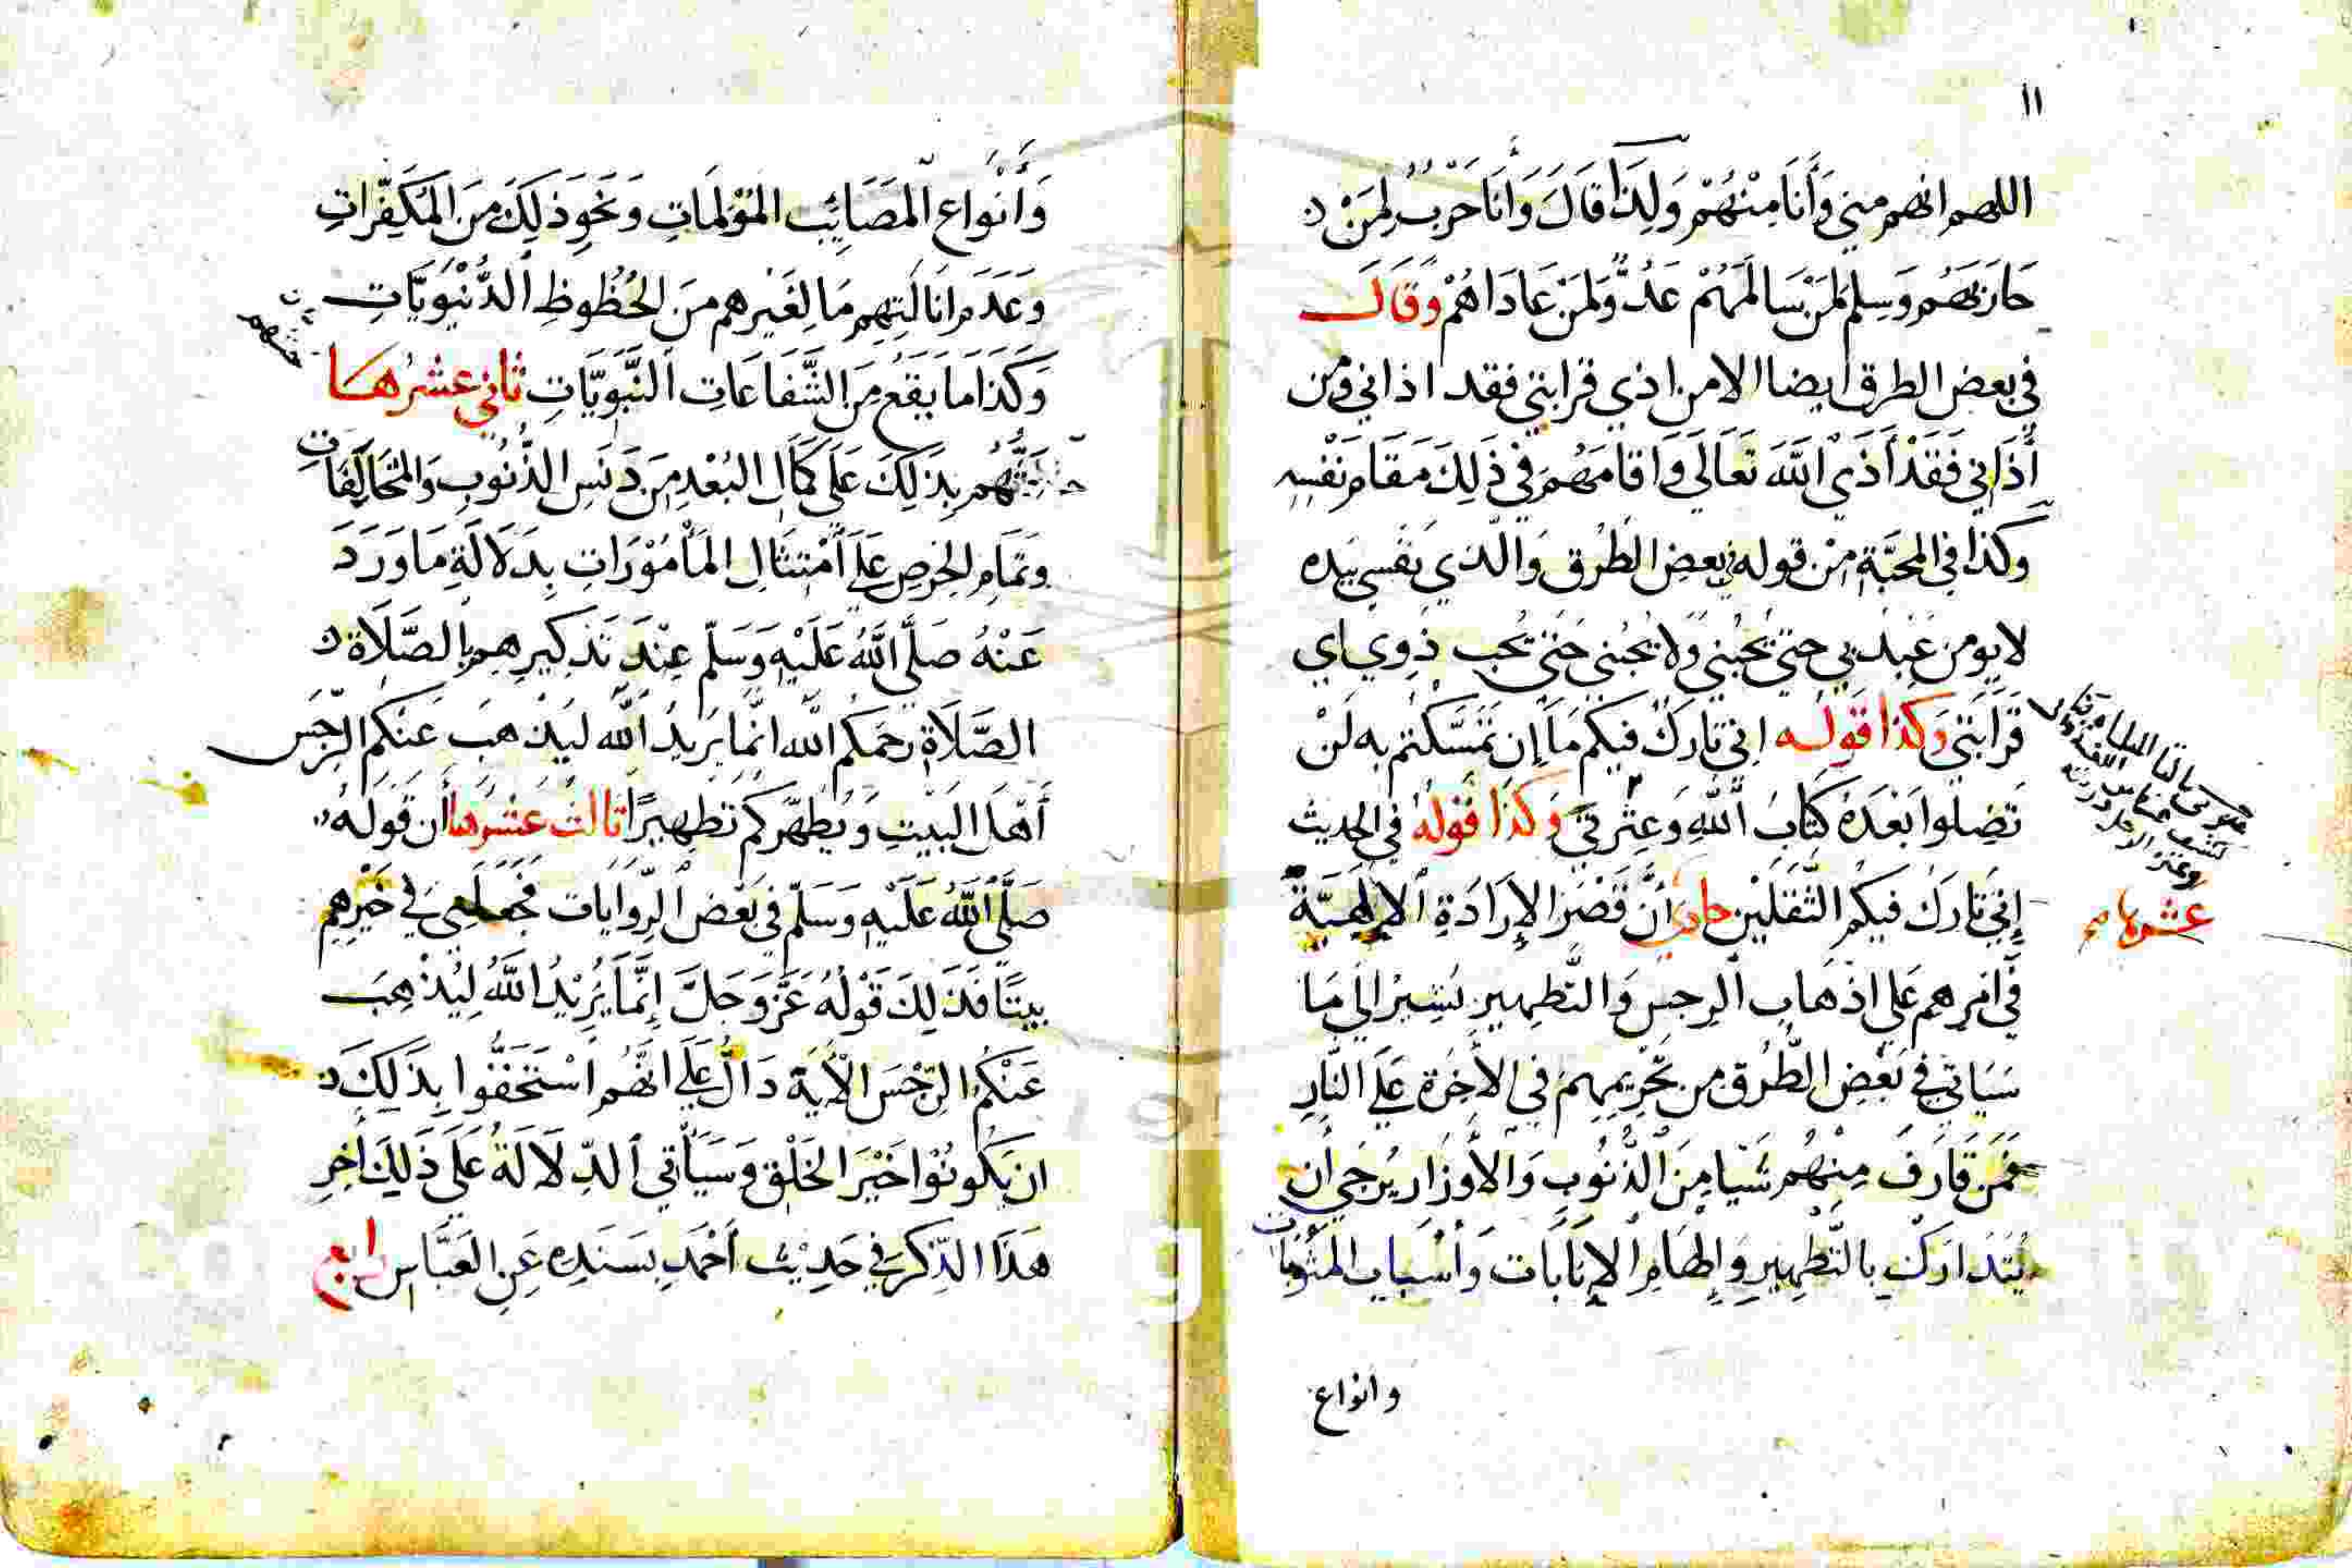 ١١
اللهم انهم مني وَأَنَا مِنْهُمْ وَلِذَا قَالَ وَأَنَا حَرْبٌ لِمَنْ
حَارَبَهُم وَسِلم لمَنْ سَالَمَهُمْ عَدُوٌّ وَلمَنْ عَادَاهُمْ وَقَالَ
في بعض الطرق ايضا الا من اذي قرابتي فقد اذاني ومن
أَذَاني فَقَدْ أَذَى اللَّهَ تَعَالَى وَاقامَهُم في ذَلِكَ مَقَامَ نَفْسِهِ
وكذا في المحَبَّةِ مِنْ قوله في بعض الطُرُق وَالَّذي نَفسي بيَدِه
لا يومن عَبْد بي حتى يُحبّني وَلا يُحبني حَتى يُحب ذوي اي
قَرَابَتي وَكذا قَوله اني تارك فيكم مَا إن تمَسَّكتم بِه لَنْ
تَضِلوا بَعْدَهُ كتابَ اللَّهِ وَعِتْرتي وَكذَا قولُهُ في الحديث
إِني تَارك فيكم الثَّقَلَيْن حادي أنَّ قَصْرَ الإِرَادَةِ الالهيَّة
عشرها
في أمرهم عَلى اذهَاب الرجس وَالتَّطهير يُشِيرُ إلى مَا
سَيَاتي في بَعْض الطُّرُق من تحْرِيمِهِمْ في الأخِرَة عَلَى النَّارِ
فَمَن قَارَفَ مِنْهُم شَيْا مِنَ الذُّنُوبِ وَالأَوْزَار يُرجَى أن
يُتَدَارَكَ بِالتَّطهِيرِ وَإِلهَامِ الإِنَابَات وَأَسْبَاب المثُوبَات
وانواع
وَأَنْوَاعِ المَصَائِب المُؤلِمَاتِ وَنَحْوِ ذلِكَ مِنَ المُكَفِّرَاتِ
وَعَدَم انَالَتِهِم مَا لِغَيْرهم مِنَ الحُظُوظِ الدُّنْيَوِيَّاتِ
وَكَذَا مَا يَقَعُ مِنَ الشَّفَاعَاتِ النَّبَوِيَّاتِ ثاني عشرها
حثهم بِذَلِكَ عَلَى كَمَالِ البُعْدِ مِنْ دَنَسِ الذُّنُوبِ وَالمُخَالَفَات
وَتَمَامِ الحِرْصِ عَلَى أمْتِثَالِ المَأْمُوْرَاتِ بِدَلَالَةِ مَا وَرَدَ
عَنْهُ صَلَّى اللَّهُ عَلَيْهِ وَسَلَّم عِنْدَ تَذكِيرِهِم بِالصَّلَاة
الصَّلَاة رحمَكُم الله انَّما يُريْدُ اللَّه ليُذْهِبَ عَنكُم الرِّجْس
أَهْلَ البَيْتِ وَيُطَهِّرَكُمْ تَطهِيرًا ثالث عَشرها أن قَوْلَهُ
صَلَّى اللَّهُ عَلَيْهِ وَسَلَّم في بَعْض الرِّوَايَات فَجَعَلَني في خَيْرِهِم
بيتًا فَذَلِكَ قَوْلُهُ عَزَّ وَجَلَّ إِنَّمَا يُرِيْدُ اللَّهُ لِيُذْهِبَ
عَنْكُم الرِّجْسَ الأيَةَ دَالٌّ عَلَى انَّهُم اسْتَحَقُّوا بِذَلِكَ
ان يَكُونُوا خَيْرَ الخَلْق وَسَيَأتي الدِّلَالَةُ عَلَى ذَلِكَ أخِر
هَذَا الذِّكرِ في حَدِيْث أَحْمَد بسَنَدِه عَنِ العَبَّاس رابع